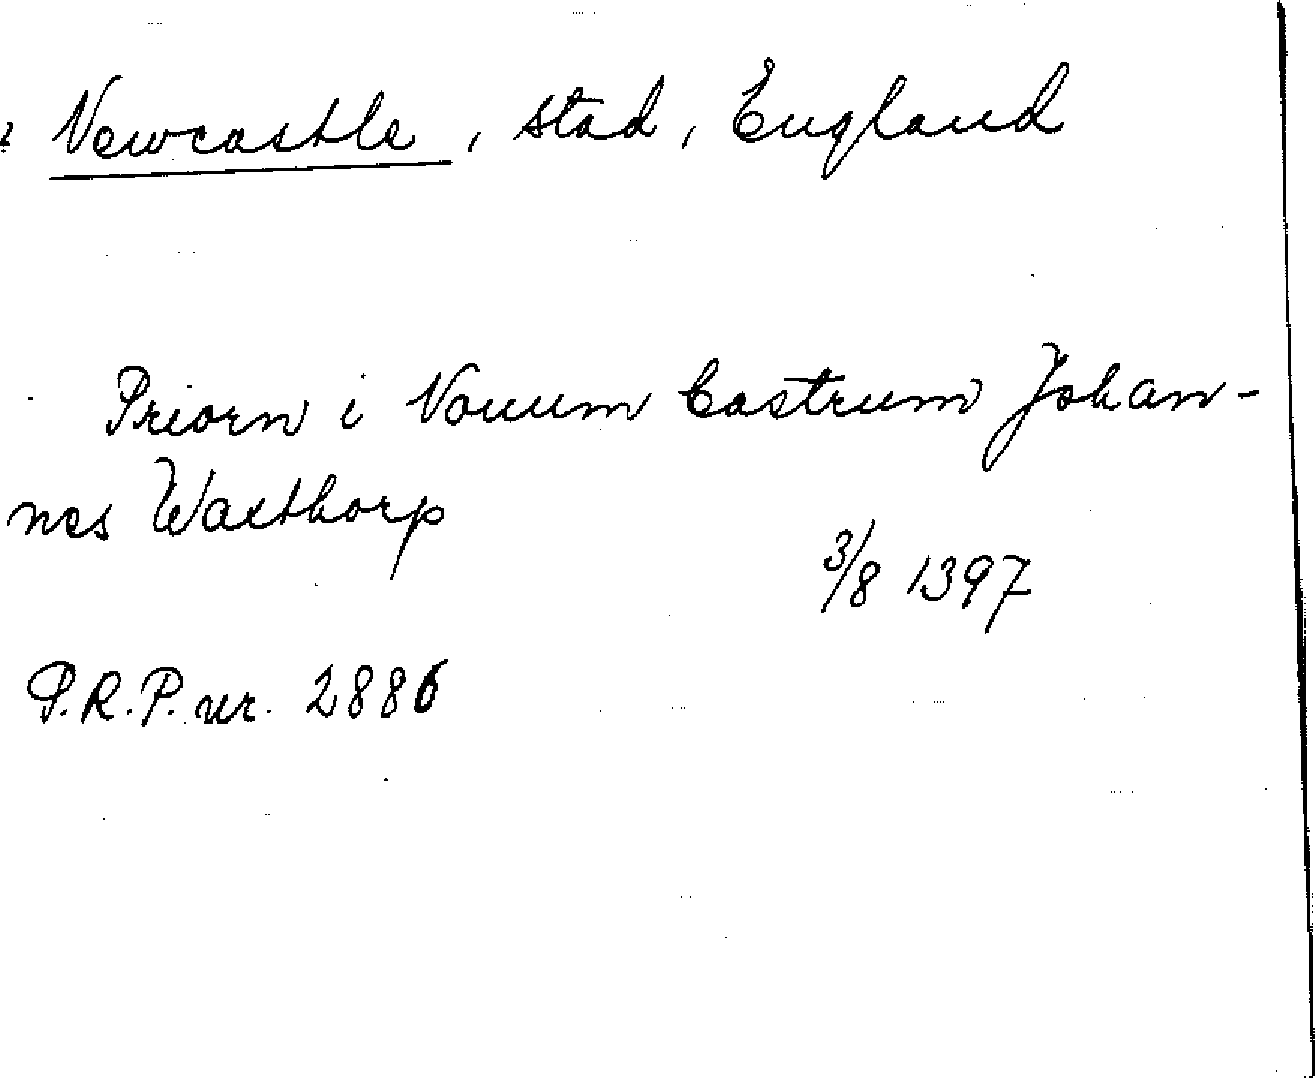 ? Newcastle, stad, England
Priorn i Nouum Castrum Johan-
nes Wasthorp
3/8 1397
P.R.P. nr. 2886